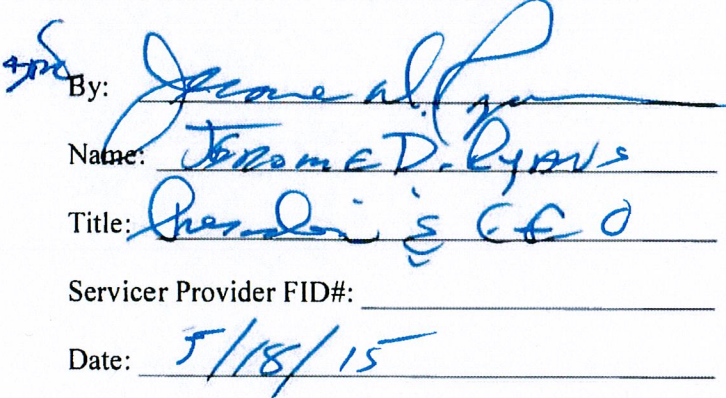 By: Jerome D. Ryans
Name: JEROME D. RYANS
Title: President & CEO
Servicer Provider FID#:
Date: 5/18/15